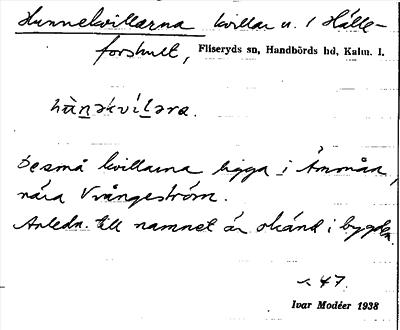 Hunnekvillarna kvillar u. / Hälle-
forshult, Fliseryds sn, Handbörds hd, Kalm. l.
hùnəkvílara.
De små kvillarna ligga i Ämmån,
nära Vrångeström.
Anledn. till namnet är okänd i bygden.
47.
Ivar Modéer 1938